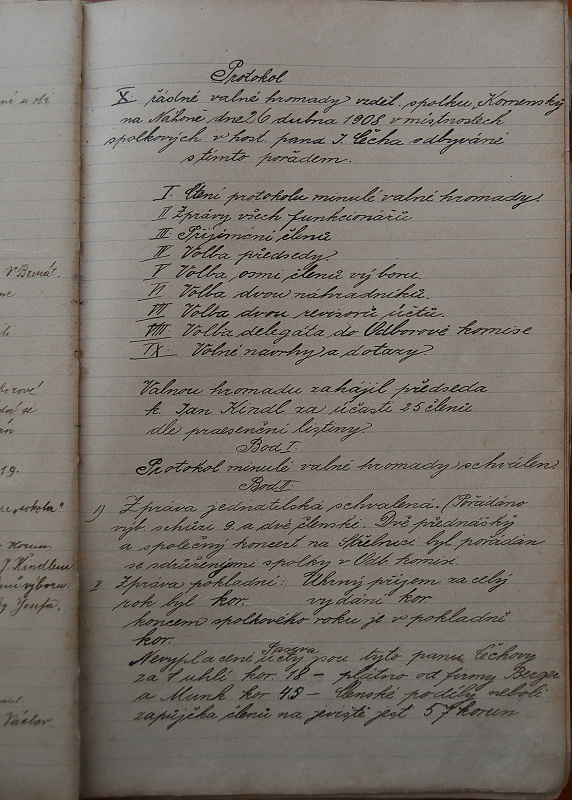 Protokol
X. řádné valné hromady vzděl. spolku „Komenský
na Náhoně dne 26 dubna 1908 v místnostech
spolkových v host. pana J. Čecha odbyváné
s tímto pořádem.
I. Čtení protokolu minulé valné hromady.
II Zprávy všech funkcionářů
III. Přijímání členů
IV Volba předsedy.
V Volba osmi členů výboru.
VI Volba dvou náhradníků.
VII Volba dvou revisorů účtů.
VIII. Volba delegáta do Odborové komise
IX. Volné návrhy a dotazy.
Valnou hromadu zahájil předseda
k. Jan Kindl za účasti 25 členů
dle praesenční listiny.
Bod I.
Protokol minulé valné hromady schválen
Bod II
1) Zpráva jednatelská schválená. (Pořádáno
výb. schůzí 9. a dvě členské. Dvě přednášky
a společný koncert na Střelnici byl pořádán
se sdruženými spolky v Odb. komisi.
II. Zpráva pokladní: Úhrný příjem za celý
rok byl kor. vydání kor.
koncem spolkového roku je v pokladně
kor.
Nevyplacené účty jsou tyto panu Čechovy
za uhlí kor. 18 – plátno od firmy Berger
a Munk kor 45 – Členské podíly neboli
zapůjčka členů na jeviště jest 57 korun
ní u obi
V Brná
19.
"sokola"
J. Kindlem
Josefa,
Václav